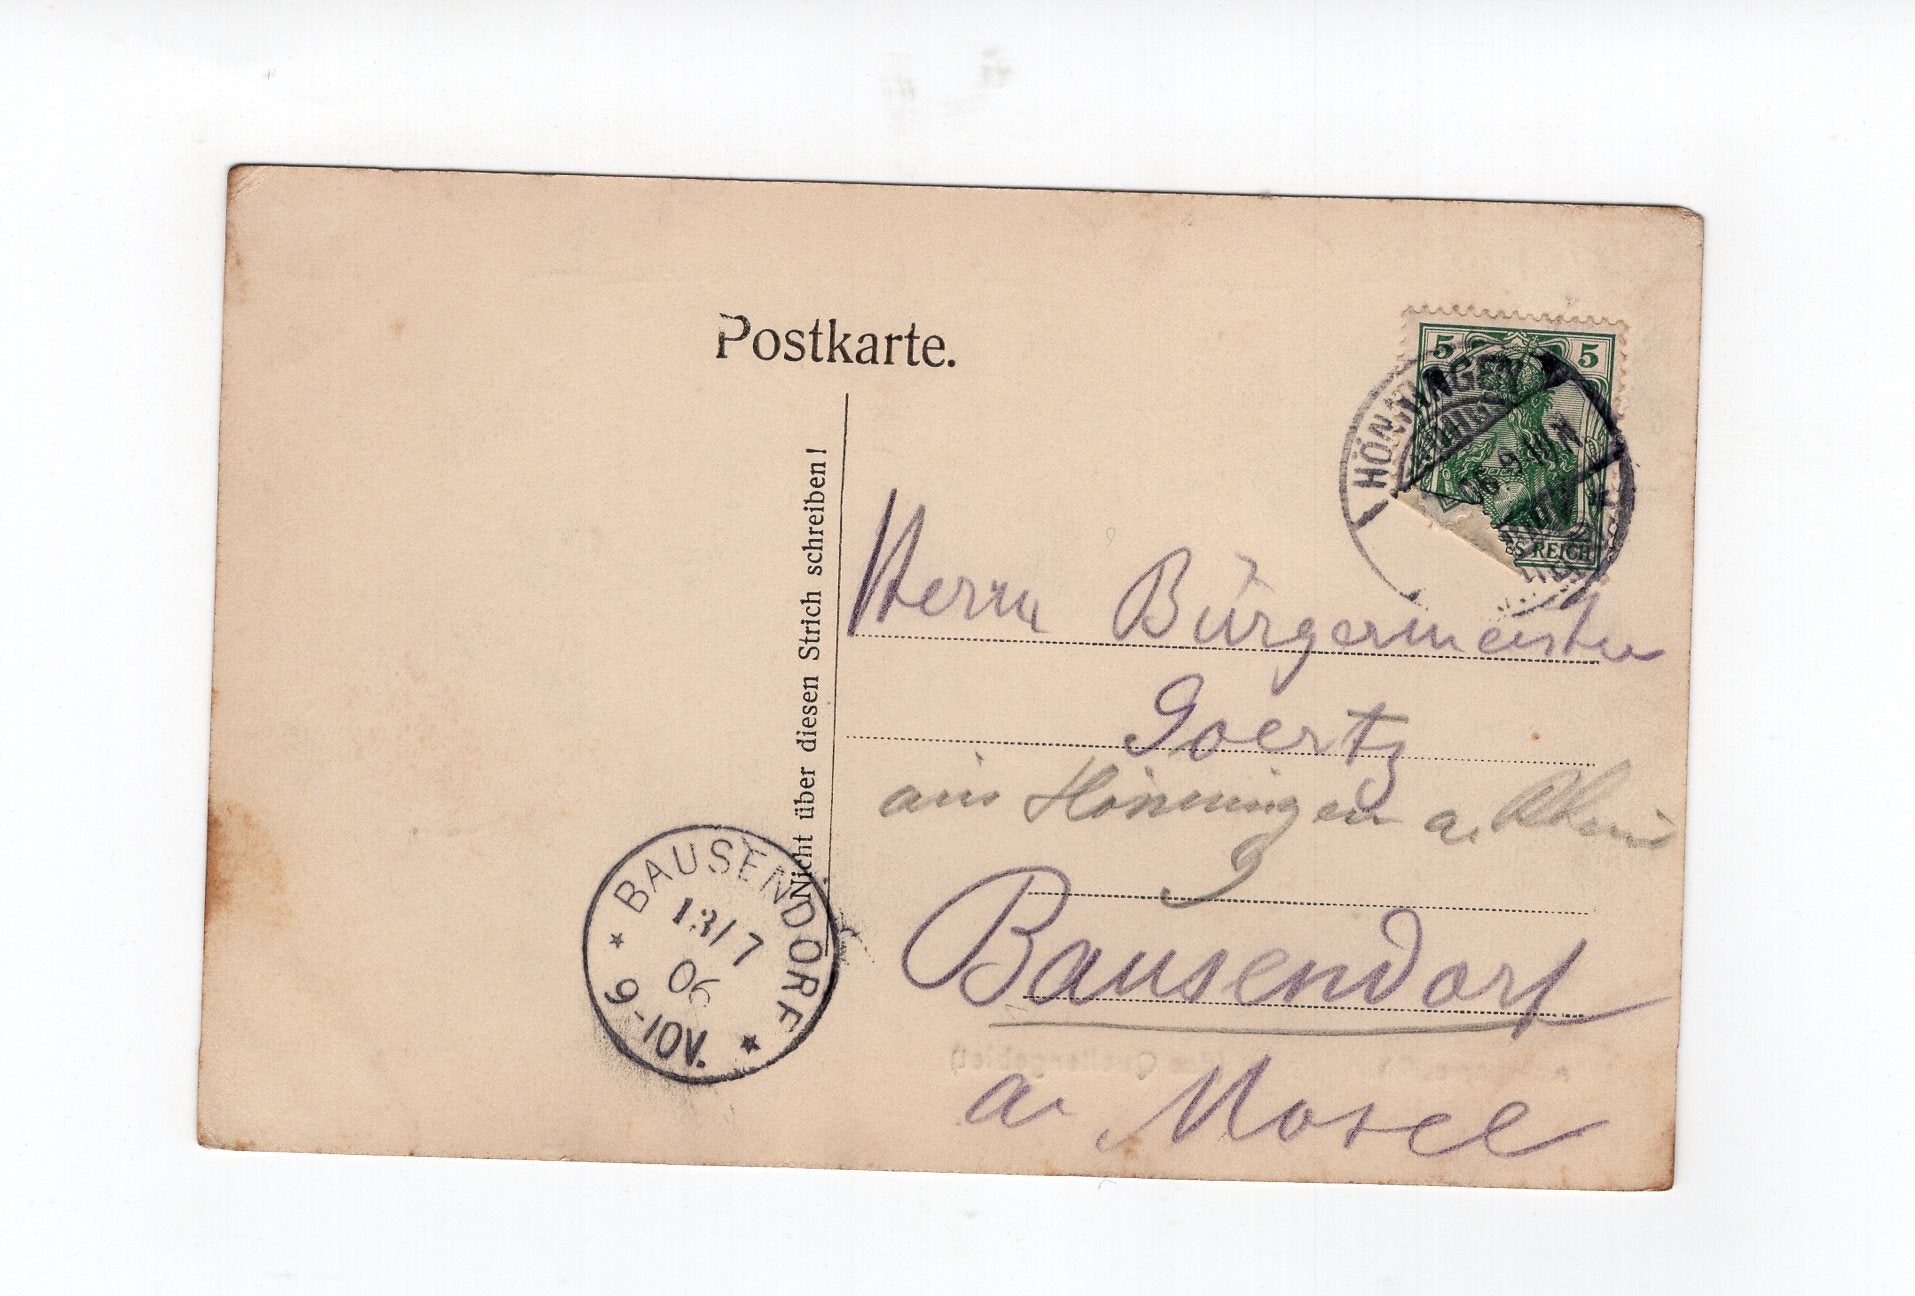 Postkarte.
Nicht über diesen Strich schreiben!
5 5
HÖNNINGEN
06. 9-10 N
S REICH
Herrn Bürgermeister
Goertz
aus Hönningen a. Rhein
Bausendorf
a. Mosel
BAUSENDORF
13/7
06
6-10V.